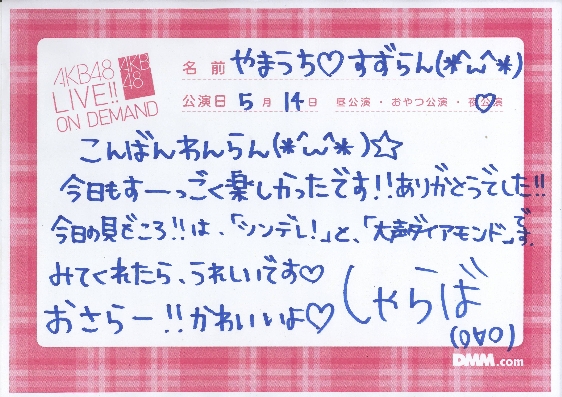 AKB48
LIVE!!
ON DEMAND
AKB
48
名前 やまうち♡すずらん(*^ω^*)
公演日 5月14日 昼公演・おやつ公演・夜公演
こんばんわんらん(*^ω^*)☆
今日もすーっごく楽しかったです!!ありがとうでした!!
今日の見どころ!!は、「シンデレ!」と、「大声ダイアモンド」です。
みてくれたら、うれしいです♡
おさらー!!かわいいよ♡
しゃらば
(0∀0)
DMM.com